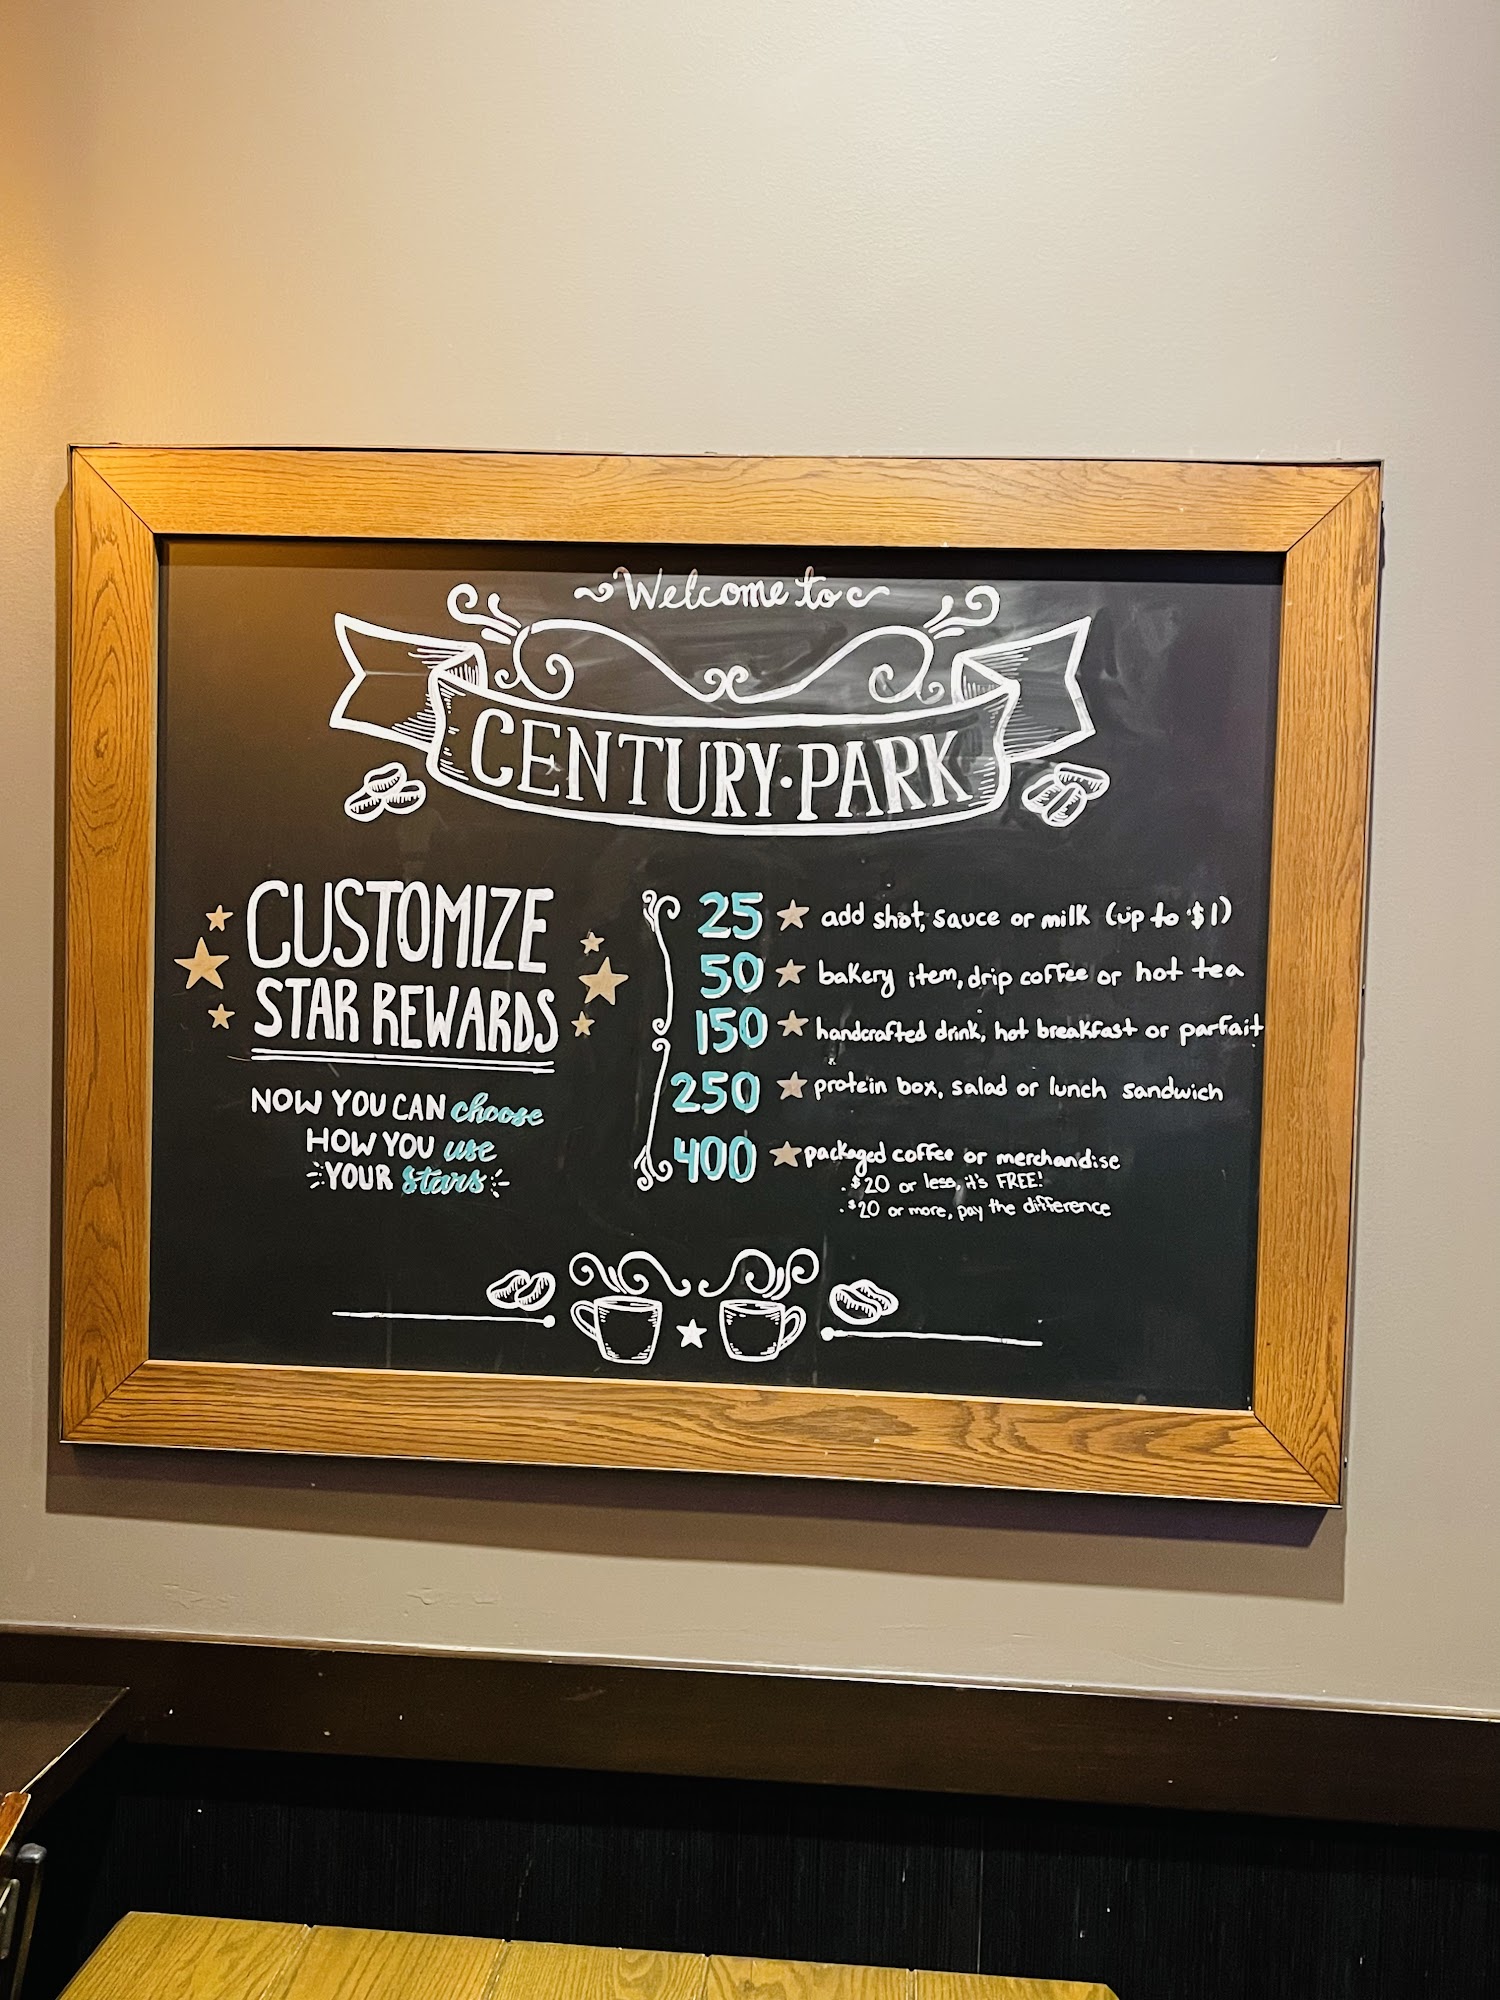 Welcome to
CENTURY·PARK
CUSTOMIZE
STAR REWARDS
NOW YOU CAN choose
HOW YOU use
YOUR stars
25 ★ add shot, sauce or milk (up to $1)
50 ★ bakery item, drip coffee or hot tea
150 ★ handcrafted drink, hot breakfast or parfait
250 ★ protein box, salad or lunch sandwich
400 ★ packaged coffee or merchandise
· $20 or less, it's FREE!
· $20 or more, pay the difference